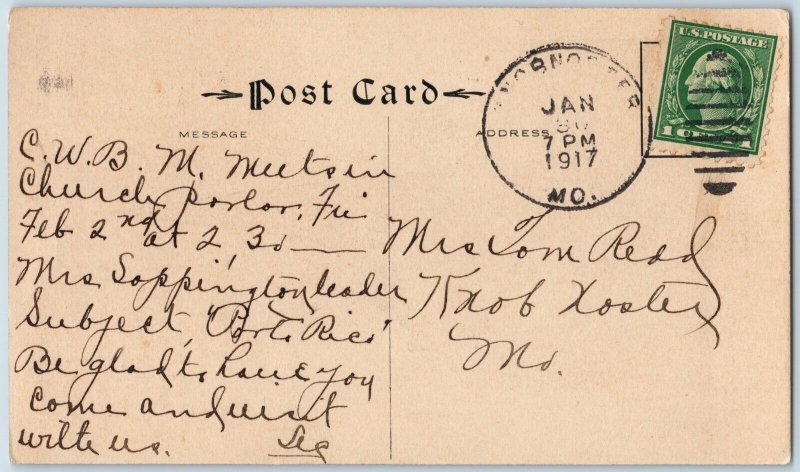 Post Card
MESSAGE
ADDRESS
KNOBNOSTER
JAN
30
7 PM
1917
MO.
U.S. POSTAGE
1 CENT 1
C. W. B. M. Meets in
Church parlor, Fri
Feb 2nd at 2, 30 —
Mrs Sappington leader
Subject, "Porto Rico"
Be glad to have you
come and visit
with us. Sec
Mrs Tom Read
Knob Noster
Mo.